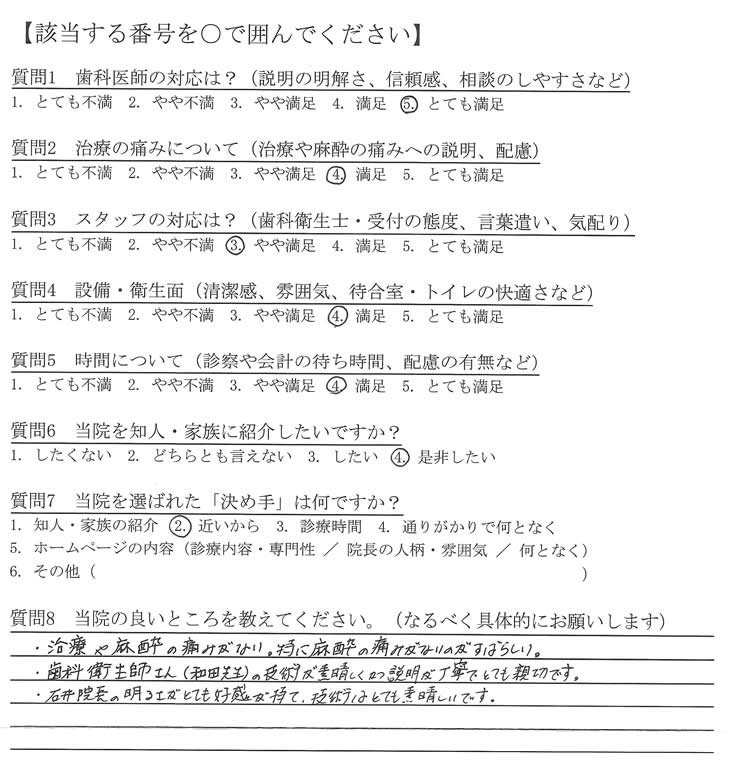 【該当する番号を○で囲んでください】
質問1 歯科医師の対応は？（説明の明解さ、信頼感、相談のしやすさなど）
1. とても不満 2. やや不満 3. やや満足 4. 満足 5. とても満足
質問2 治療の痛みについて（治療や麻酔の痛みへの説明、配慮）
1. とても不満 2. やや不満 3. やや満足 4. 満足 5. とても満足
質問3 スタッフの対応は？（歯科衛生士・受付の態度、言葉遣い、気配り）
1. とても不満 2. やや不満 3. やや満足 4. 満足 5. とても満足
質問4 設備・衛生面（清潔感、雰囲気、待合室・トイレの快適さなど）
1. とても不満 2. やや不満 3. やや満足 4. 満足 5. とても満足
質問5 時間について（診察や会計の待ち時間、配慮の有無など）
1. とても不満 2. やや不満 3. やや満足 4. 満足 5. とても満足
質問6 当院を知人・家族に紹介したいですか？
1. したくない 2. どちらとも言えない 3. したい 4. 是非したい
質問7 当院を選ばれた「決め手」は何ですか？
1. 知人・家族の紹介 2. 近いから 3. 診療時間 4. 通りがかりで何となく
5. ホームページの内容（診療内容・専門性 ／ 院長の人柄・雰囲気 ／ 何となく）
6. その他（ ）
質問8 当院の良いところを教えてください。（なるべく具体的にお願いします）
・治療や麻酔の痛みがない。特に麻酔の痛みがないのがすばらしい。
・歯科衛生師さん（和田先生）の技術が素晴しくかつ説明が丁寧でとても親切です。
・石井院長の明るさがとても好感が持て、技術はとても素晴しいです。